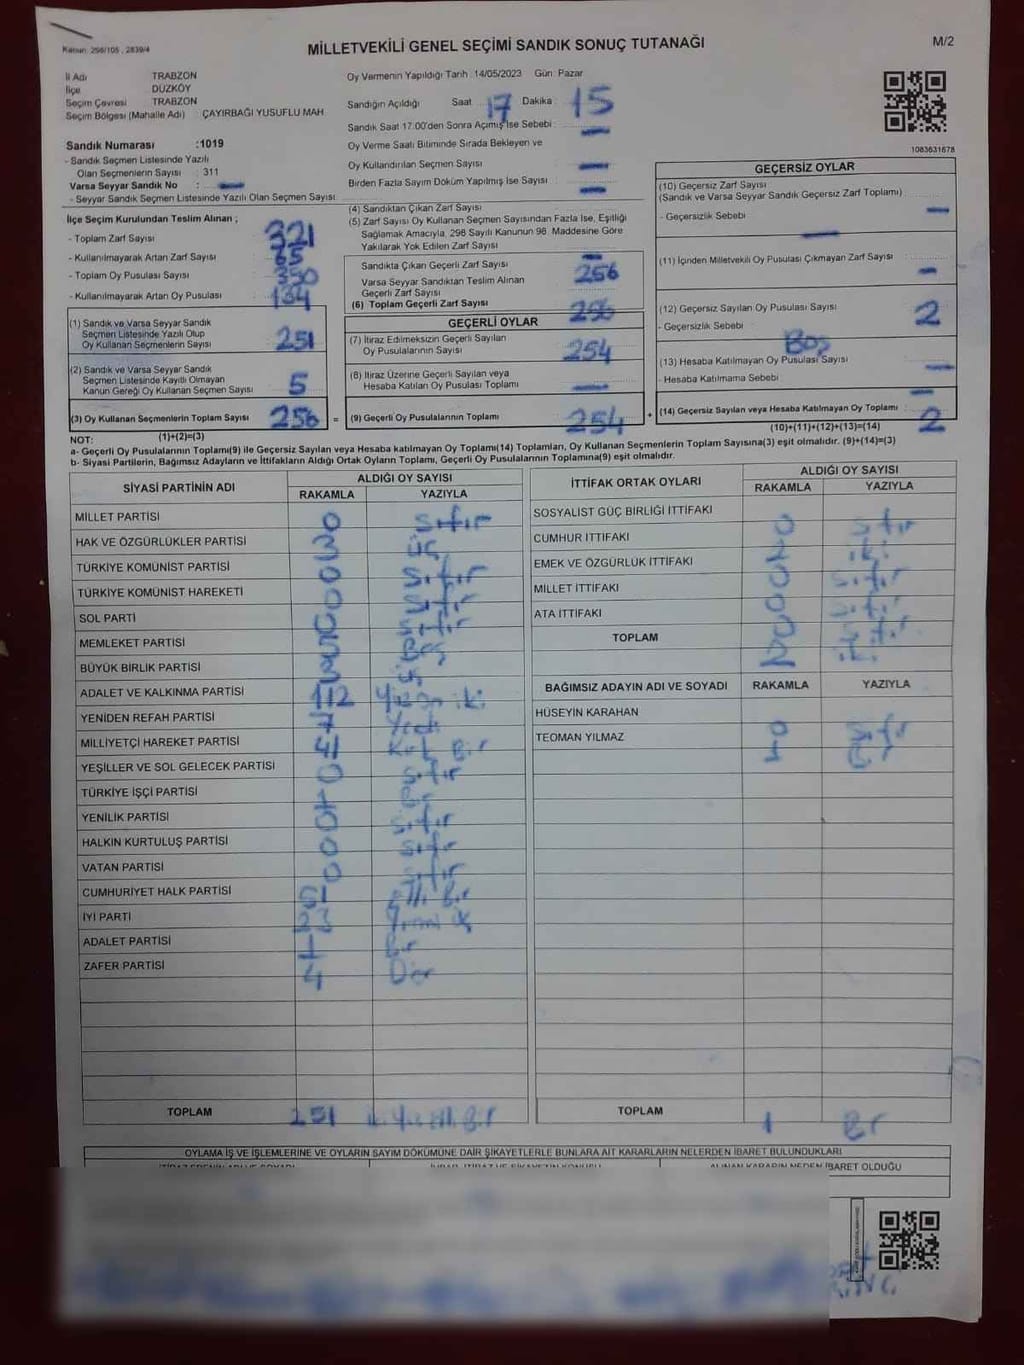 Kanun: 298/105 , 2839/4
MİLLETVEKİLİ GENEL SEÇİMİ SANDIK SONUÇ TUTANAĞI
M/2
İl Adı TRABZON
İlçe DÜZKÖY
Seçim Çevresi TRABZON
Seçim Bölgesi (Mahalle Adı) : ÇAYIRBAĞI YUSUFLU MAH
Sandık Numarası :1019
- Sandık Seçmen Listesinde Yazılı
Olan Seçmenlerin Sayısı : 311
Varsa Seyyar Sandık No : -
- Seyyar Sandık Seçmen Listesinde Yazılı Olan Seçmen Sayısı
Oy Vermenin Yapıldığı Tarih : 14/05/2023 Gün: Pazar
Sandığın Açıldığı Saat 17 Dakika : 15
Sandık Saat 17:00'den Sonra Açımış İse Sebebi : -
Oy Verme Saati Bitiminde Sırada Bekleyen ve
Oy Kullandırılan Seçmen Sayısı -
Birden Fazla Sayım Döküm Yapılmış İse Sayısı -
1083631678
İlçe Seçim Kurulundan Teslim Alınan ;
- Toplam Zarf Sayısı 321
- Kullanılmayarak Artan Zarf Sayısı : 65
- Toplam Oy Pusulası Sayısı
- Kullanılmayarak Artan Oy Pusulası : 134
(1) Sandık ve Varsa Seyyar Sandık
Seçmen Listesinde Yazılı Olup
Oy Kullanan Seçmenlerin Sayısı 251
(2) Sandık ve Varsa Seyyar Sandık
Seçmen Listesinde Kayıtlı Olmayan
Kanun Gereği Oy Kullanan Seçmen Sayısı 5
(3) Oy Kullanan Seçmenlerin Toplam Sayısı 256 =
(1)+(2)=(3)
(4) Sandıktan Çıkan Zarf Sayısı
(5) Zarf Sayısı Oy Kullanan Seçmen Sayısından Fazla İse, Eşitliği
Sağlamak Amacıyla, 298 Sayılı Kanunun 98. Maddesine Göre
Yakılarak Yok Edilen Zarf Sayısı -
Sandıkta Çıkan Geçerli Zarf Sayısı 256
Varsa Seyyar Sandıktan Teslim Alınan
Geçerli Zarf Sayısı
(6) Toplam Geçerli Zarf Sayısı 256
GEÇERLİ OYLAR
(7) İtiraz Edilmeksizin Geçerli Sayılan
Oy Pusulalarının Sayısı 254
(8) İtiraz Üzerine Geçerli Sayılan veya
Hesaba Katılan Oy Pusulası Toplamı -
(9) Geçerli Oy Pusulalarının Toplamı 254 +
GEÇERSİZ OYLAR
(10) Geçersiz Zarf Sayısı
(Sandık ve Varsa Seyyar Sandık Geçersiz Zarf Toplamı) -
- Geçersizlik Sebebi -
(11) İçinden Milletvekili Oy Pusulası Çıkmayan Zarf Sayısı -
(12) Geçersiz Sayılan Oy Pusulası Sayısı 2
- Geçersizlik Sebebi Boş
(13) Hesaba Katılmayan Oy Pusulası Sayısı -
- Hesaba Katılmama Sebebi -
(14) Geçersiz Sayılan veya Hesaba Katılmayan Oy Toplamı : 2
(10)+(11)+(12)+(13)=(14)
NOT:
a- Geçerli Oy Pusulalarının Toplamı(9) ile Geçersiz Sayılan veya Hesaba katılmayan Oy Toplamı(14) Toplamları, Oy Kullanan Seçmenlerin Toplam Sayısına(3) eşit olmalıdır. (9)+(14)=(3)
b- Siyasi Partilerin, Bağımsız Adayların ve İttifakların Aldığı Ortak Oyların Toplamı, Geçerli Oy Pusulalarının Toplamına(9) eşit olmalıdır.
SİYASİ PARTİNİN ADI ALDIĞI OY SAYISI
RAKAMLA YAZIYLA
MİLLET PARTİSİ 0 Sıfır
HAK VE ÖZGÜRLÜKLER PARTİSİ 3 Üç
TÜRKİYE KOMÜNİST PARTİSİ 0 Sıfır
TÜRKİYE KOMÜNİST HAREKETİ 0 Sıfır
SOL PARTİ 0 Sıfır
MEMLEKET PARTİSİ 5 Beş
BÜYÜK BİRLİK PARTİSİ 3 Üç
ADALET VE KALKINMA PARTİSİ 112 Yüz on iki
YENİDEN REFAH PARTİSİ 7 Yedi
MİLLİYETÇİ HAREKET PARTİSİ 41 Kırk Bir
YEŞİLLER VE SOL GELECEK PARTİSİ 0 Sıfır
TÜRKİYE İŞÇİ PARTİSİ 1 Bir
YENİLİK PARTİSİ 0 Sıfır
HALKIN KURTULUŞ PARTİSİ 0 Sıfır
VATAN PARTİSİ 0 Sıfır
CUMHURİYET HALK PARTİSİ 51 Elli Bir
İYİ PARTİ 23 Yirmi üç
ADALET PARTİSİ 1 Bir
ZAFER PARTİSİ 4 Dört
TOPLAM 251 iki Yüz Elli Bir
İTTİFAK ORTAK OYLARI ALDIĞI OY SAYISI
RAKAMLA YAZIYLA
SOSYALİST GÜÇ BİRLİĞİ İTTİFAKI 0 Sıfır
CUMHUR İTTİFAKI 2 iki
EMEK VE ÖZGÜRLÜK İTTİFAKI 0 Sıfır
MİLLET İTTİFAKI 0 Sıfır
ATA İTTİFAKI 0 Sıfır
TOPLAM 2 iki
BAĞIMSIZ ADAYIN ADI VE SOYADI RAKAMLA YAZIYLA
HÜSEYİN KARAHAN 0 Sıfır
TEOMAN YILMAZ 1 Bir
TOPLAM 1 Bir
OYLAMA İŞ VE İŞLEMLERİNE VE OYLARIN SAYIM DÖKÜMÜNE DAİR ŞİKAYETLERLE BUNLARA AİT KARARLARIN NELERDEN İBARET BULUNDUKLARI
ALINAN KARARIN NEDEN İBARET OLDUĞU